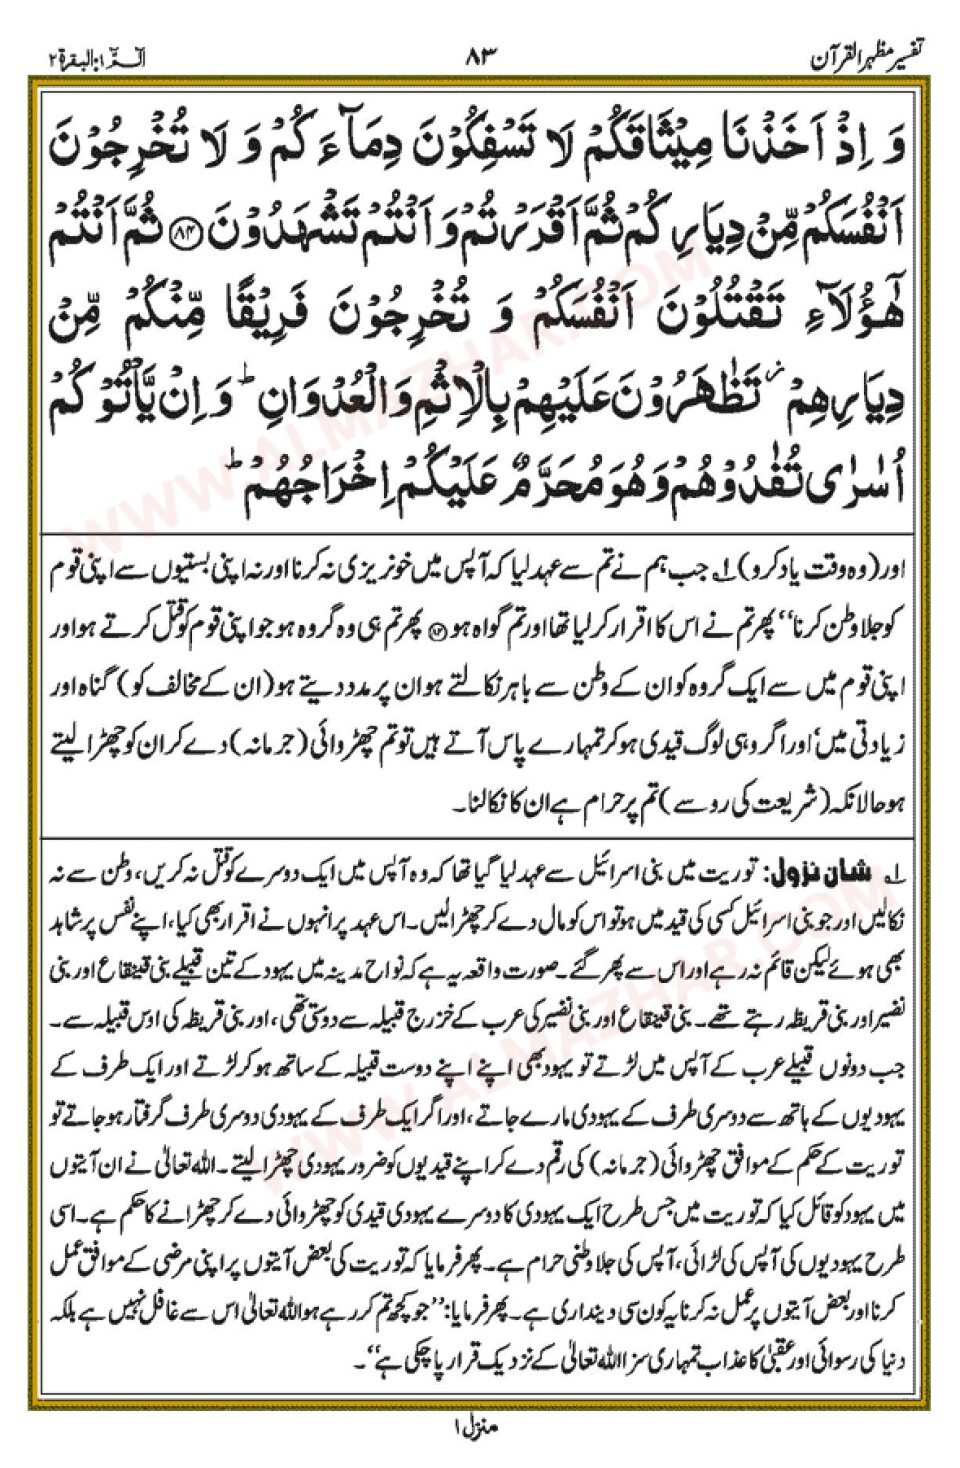 تفسیر مظہر القرآن
۸۳
الٓـمّٓ ۱: البقرۃ ۲
وَ اِذْ اَخَذْنَا مِیْثَاقَكُمْ لَا تَسْفِكُوْنَ دِمَآءَكُمْ وَ لَا تُخْرِجُوْنَ
اَنْفُسَكُمْ مِّنْ دِیَارِكُمْ ثُمَّ اَقْرَرْتُمْ وَ اَنْتُمْ تَشْهَدُوْنَ ﴿۸۴﴾ ثُمَّ اَنْتُمْ
هٰۤؤُلَآءِ تَقْتُلُوْنَ اَنْفُسَكُمْ وَ تُخْرِجُوْنَ فَرِیْقًا مِّنْكُمْ مِّنْ
دِیَارِهِمْ ز تَظٰهَرُوْنَ عَلَیْهِمْ بِالْاِثْمِ وَالْعُدْوَانِ ؕ وَ اِنْ یَّاْتُوْكُمْ
اُسٰرٰى تُفٰدُوْهُمْ وَ هُوَ مُحَرَّمٌ عَلَیْكُمْ اِخْرَاجُهُمْ ؕ
اور (وہ وقت یاد کرو) ۱؎ جب ہم نے تم سے عہد لیا کہ آپس میں خونریزی نہ کرنا اور نہ اپنی بستیوں سے اپنی قوم
کو جلاوطن کرنا’’ پھر تم نے اس کا اقرار کرلیا تھا اور تم گواہ ہو ﴿۸۴﴾ پھر تم ہی وہ گروہ ہو جو اپنی قوم کو قتل کرتے ہو اور
اپنی قوم میں سے ایک گروہ کو ان کے وطن سے باہر نکالتے ہو ان پر مدد دیتے ہو (ان کے مخالف کو) گناہ اور
زیادتی میں‘ اور اگر وہی لوگ قیدی ہوکر تمہارے پاس آتے ہیں تو تم چھڑوائی (جرمانہ) دے کر ان کو چھڑا لیتے
ہو حالانکہ (شریعت کی رو سے) تم پر حرام ہے ان کا نکالنا۔
۱؎ شان نزول: توریت میں بنی اسرائیل سے عہد لیا گیا تھا کہ وہ آپس میں ایک دوسرے کو قتل نہ کریں، وطن سے نہ
نکالیں اور جو بنی اسرائیل کسی کی قید میں ہو تو اس کو مال دے کر چھڑالیں۔ اس عہد پر انہوں نے اقرار بھی کیا، اپنے نفس پر شاہد
بھی ہوئے لیکن قائم نہ رہے اور اس سے پھر گئے۔ صورت واقعہ یہ ہے کہ نواح مدینہ میں یہود کے تین قبیلے بنی قینقاع اور بنی
نضیر اور بنی قریظہ رہتے تھے۔ بنی قینقاع اور بنی نضیر کی عرب کے خزرج قبیلہ سے دوستی تھی، اور بنی قریظہ کی اوس قبیلہ سے۔
جب دونوں قبیلے عرب کے آپس میں لڑتے تو یہود بھی اپنے اپنے دوست قبیلہ کے ساتھ ہو کر لڑتے اور ایک طرف کے
یہودیوں کے ہاتھ سے دوسری طرف کے یہودی مارے جاتے، اور اگر ایک طرف کے یہودی دوسری طرف گرفتار ہو جاتے تو
توریت کے حکم کے موافق چھڑوائی (جرمانہ) کی رقم دے کر اپنے قیدیوں کو ضرور یہودی چھڑا لیتے۔ اللہ تعالیٰ نے ان آیتوں
میں یہود کو قائل کیا کہ توریت میں جس طرح ایک یہودی کا دوسرے یہودی قیدی کو چھڑوائی دے کر چھڑانے کا حکم ہے۔ اسی
طرح یہودیوں کی آپس کی لڑائی، آپس کی جلاوطنی حرام ہے۔ پھر فرمایا کہ توریت کی بعض آیتوں پر اپنی مرضی کے موافق عمل
کرنا اور بعض آیتوں پر عمل نہ کرنا یہ کون سی دینداری ہے۔ پھر فرمایا: ’’جو کچھ تم کر رہے ہو اللہ تعالیٰ اس سے غافل نہیں ہے بلکہ
دنیا کی رسوائی اور عقبیٰ کا عذاب تمہاری سزا اللہ تعالیٰ کے نزدیک قرار پا چکی ہے‘‘۔
منزل ۱
WWW.ALMAZHAR.COM
WWW.ALMAZHAR.COM